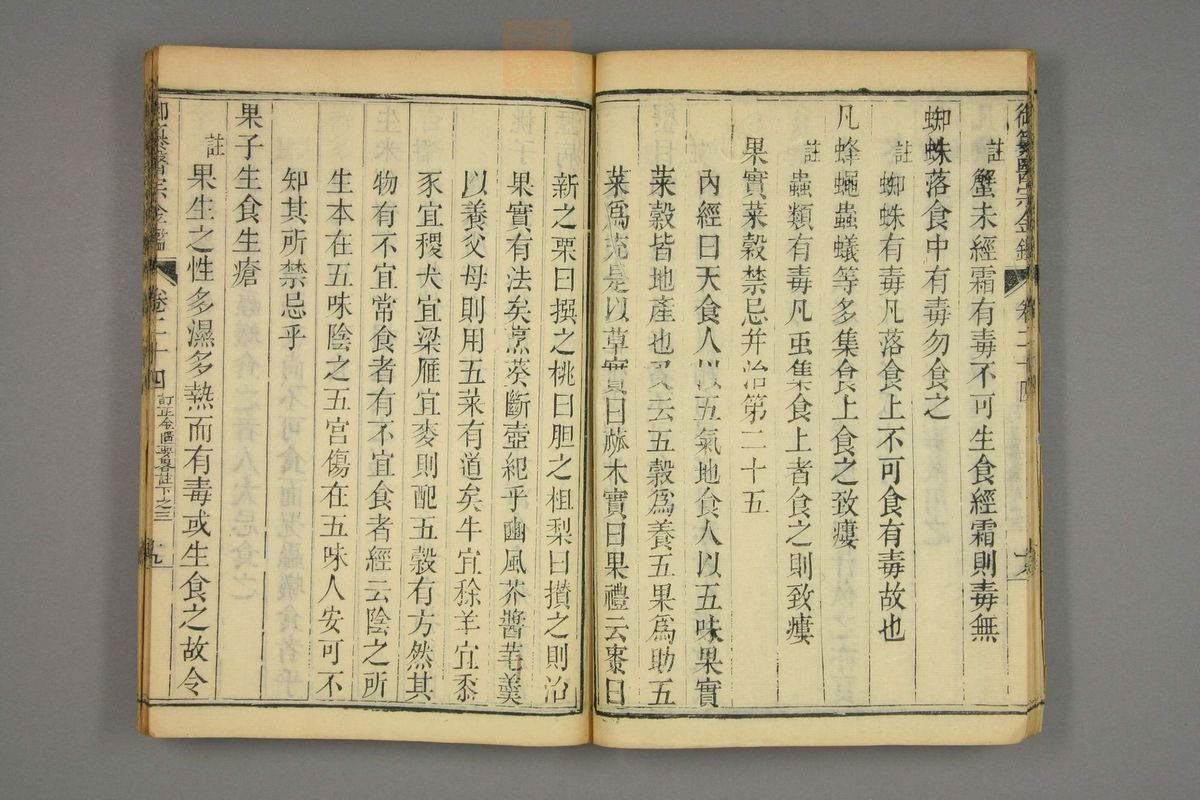 御纂醫宗金鑑 卷二十四
註蟹未經霜有毒不可生食經霜則毒無
蜘蛛落食中有毒勿食之
註蜘蛛有毒凡落食上不可食有毒故也
凡蜂蠅蟲蟻等多集食上食之致瘻
註蟲類有毒凡虫集食上者食之則致瘻
果實菜穀禁忌并治第二十五
內經曰天食人以五氣地食人以五味果實
菜穀皆地產也又云五穀爲養五果爲助五
菜爲充是以草實曰蓏木實曰果禮云棗曰
新之栗曰撰之桃曰胆之柤梨曰攅之則治
果實有法矣烹葵斷壺紀乎豳風芥醬芼羹
以養父母則用五菜有道矣牛宜稌羊宜黍
豕宜稷犬宜梁雁宜麥則配五穀有方然其
物有不宜常食者有不宜食者經云陰之所
生本在五味陰之五宮傷在五味人安可不
知其所禁忌乎
果子生食生瘡
註果生之性多濕多熱而有毒或生食之故令
御纂醫宗金鑑 卷二十四 訂正金匱要畧註下之三 十九